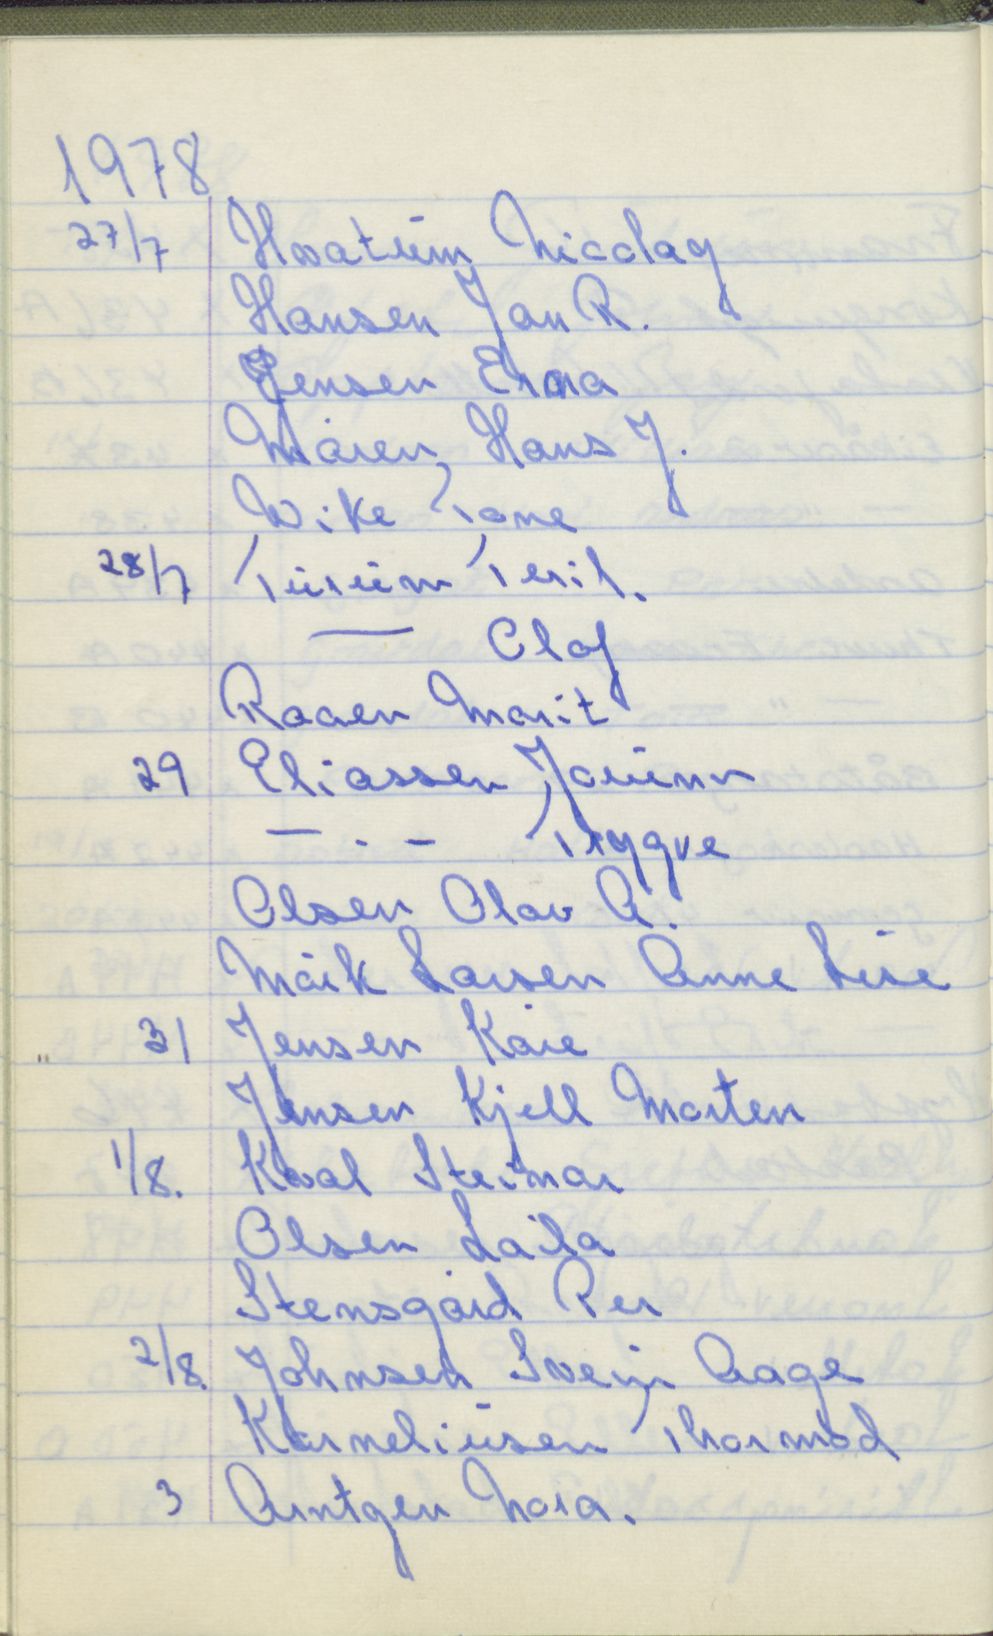 1978
27/7 Hvatum, Nicolay
Hansen Jan R.
Jensen Erna
Måren, Hans J.
Wike Tone
28/7 Turum Teril.
— Olaf
Raaen Marit
29 Eliassen, Jorunn
— . — Trygve
Olsen Olav A.
Mørk Larsen Anne Lise
31 Jensen Kåre
Jensen Kjell Morten
1/8. Kval Steinar
Olsen Laila
Stensgård Per
2/8. Johnsen Svein Aage
Korneliusen Thormod
3 Arntgen Nora.